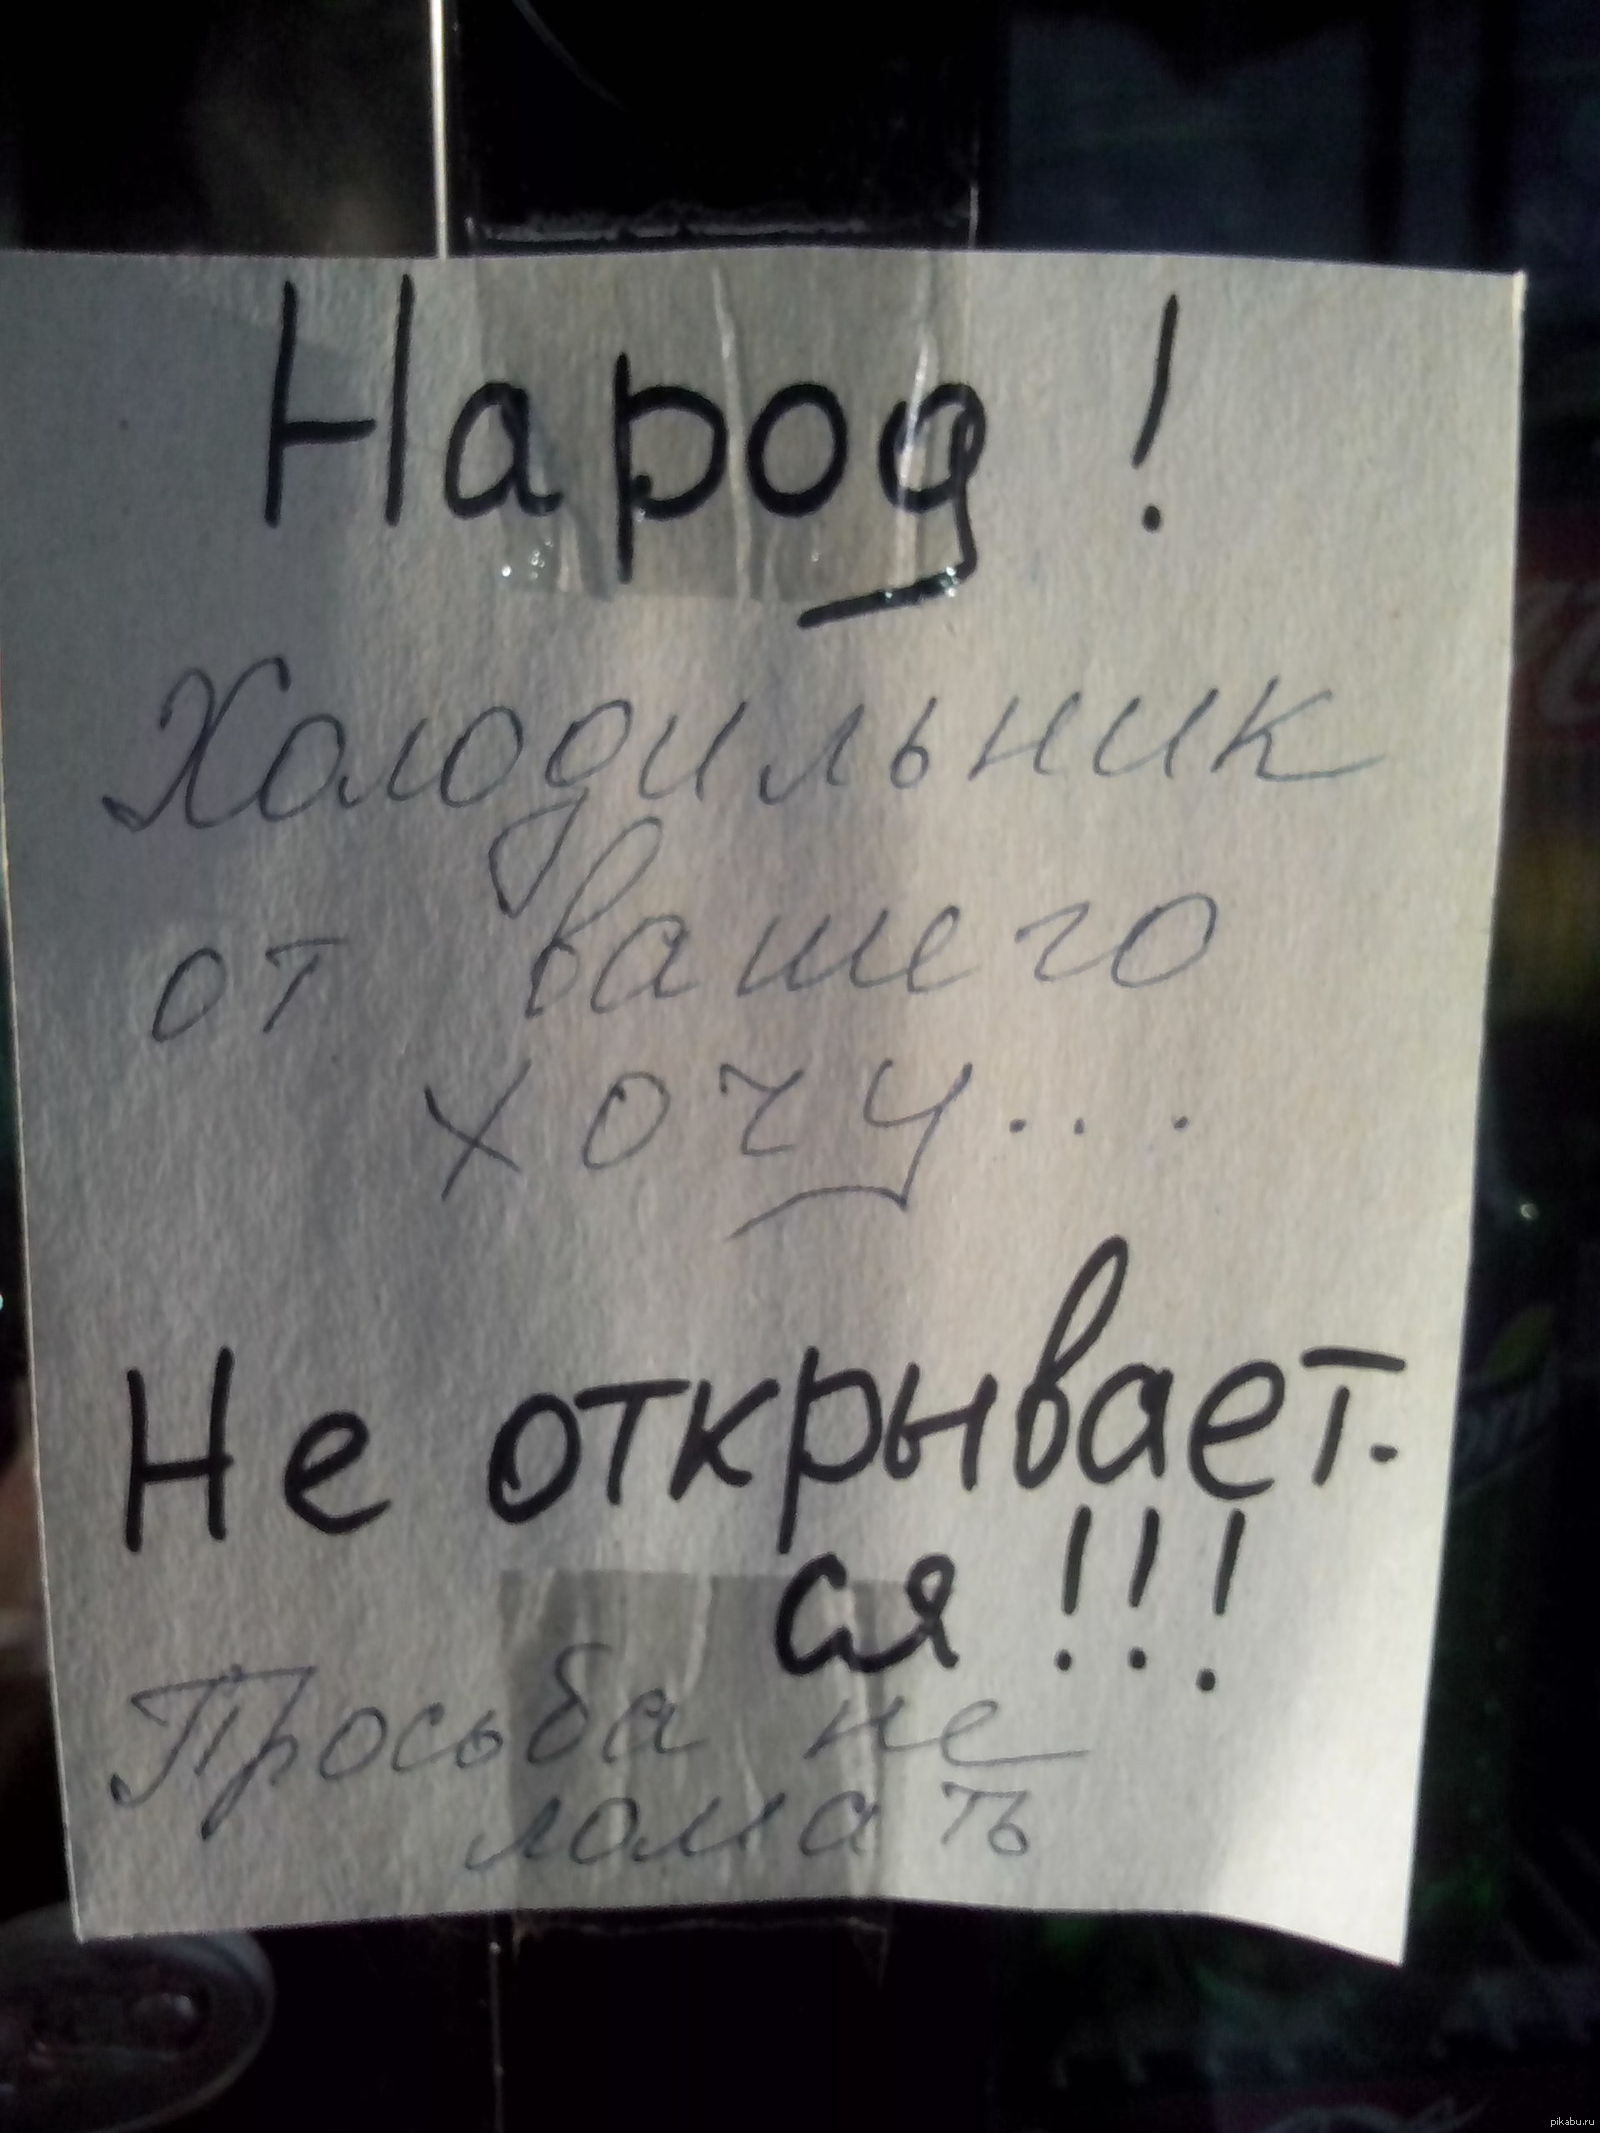 Народ !
Холодильник
от вашего
хочу...
Не открывает-
ся !!!
Просьба не
ломать
pikabu.ru